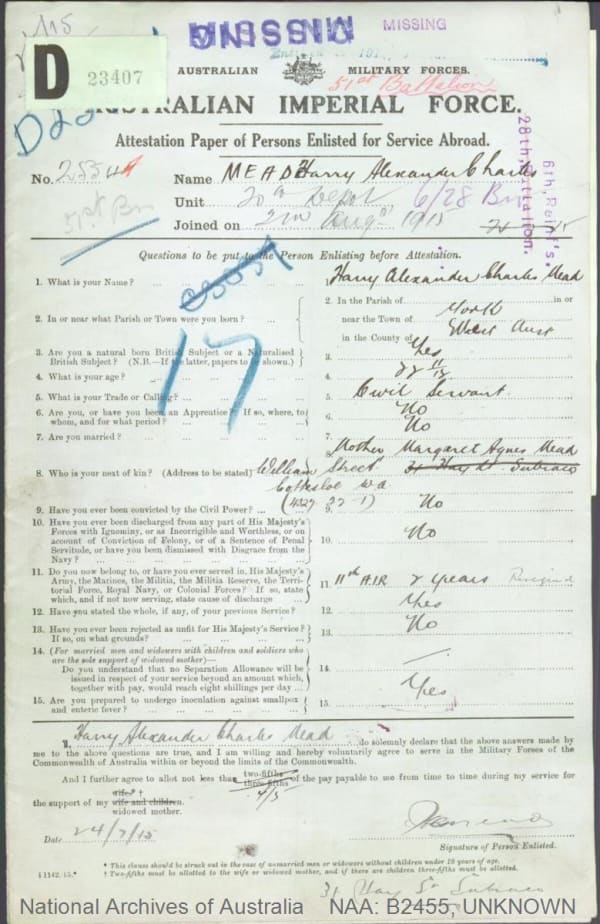 115
MISSING
MISSING
D
23407
AUSTRALIAN MILITARY FORCES.
51st Battalion
AUSTRALIAN IMPERIAL FORCE.
Attestation Paper of Persons Enlisted for Service Abroad.
No. Name MEAD Harry Alexander Charles
Unit 20th Depot 6/28 Bn
51st Bn
Joined on 2nd Augst 1915
28th Battalion.
6th Reinf's.
Questions to be put to the Person Enlisting before Attestation.
1. What is your Name? Harry Alexander Charles Mead
2. In or near what Parish or Town were you born? 2. In the Parish of in or
near the Town of York
in the County of West Aust
3. Are you a natural born British Subject or a Naturalised
British Subject? (N.B.—If the latter, papers to be shown.) 3. Yes
4. What is your age? 4. 22 11/12
17
5. What is your Trade or Calling? 5. Civil Servant
6. Are you, or have you been an Apprentice? If so, where, to
whom, and for what period? 6. No
7. Are you married? 7. No
8. Who is your next of kin? (Address to be stated) Mother Margaret Agnes Mead
William Street 31 Hay St Subiaco
Cottesloe WA
9. Have you ever been convicted by the Civil Power? 9. No
10. Have you ever been discharged from any part of His Majesty's
Forces with Ignominy, or as Incorrigible and Worthless, or on
account of Conviction of Felony, or of a Sentence of Penal
Servitude, or have you been Dismissed with Disgrace from the
Navy? 10. No
11. Do you now belong to, or have you ever served in, His Majesty's
Army, the Marines, the Militia, the Militia Reserve, the Terri-
torial Force, Royal Navy, or Colonial Forces? If so, state
which, and if not now serving, state cause of discharge 11. 11th A.I.R 2 years Resigned
12. Have you stated the whole, if any, of your previous Service? 12. Yes
13. Have you ever been rejected as unfit for His Majesty's Service?
If so, on what grounds? 13. No
14. (For married men and widowers with children and soldiers who
are the sole support of widowed mother)—
Do you understand that no Separation Allowance will be
issued in respect of your service beyond an amount which,
together with pay, would reach eight shillings per day 14. —
15. Are you prepared to undergo inoculation against smallpox
and enteric fever? 15. Yes
I, Harry Alexander Charles Mead do solemnly declare that the above answers made by
me to the above questions are true, and I am willing and hereby voluntarily agree to serve in the Military Forces of the
Commonwealth of Australia within or beyond the limits of the Commonwealth.
And I further agree to allot not less than two-fifths three-fifths of the pay payable to me from time to time during my service for
4/5
the support of my wife and children.
widowed mother.
Date 24/7/15
Signature of Person Enlisted.
* This clause should be struck out in the case of unmarried men or widowers without children under 18 years of age.
† Two-fifths must be allotted to the wife or widowed mother, and if there are children three-fifths must be allotted.
31 Hay St Subiaco
National Archives of Australia NAA: B2455, UNKNOWN